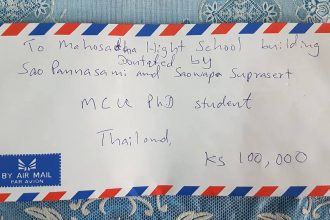 To Mahosadha Hight School building
Dontated by
Sao Pannasami and Saowapa Suprasert
MCU PhD student
Thailand,
Ks 100,000
BY AIR MAIL
PAR AVION